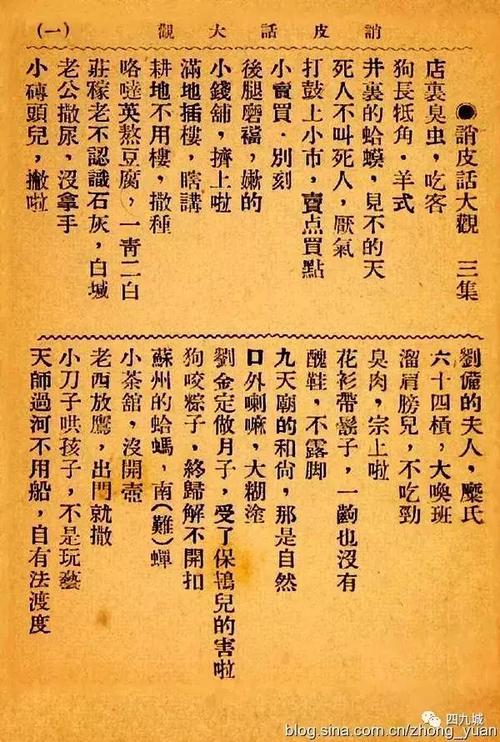 誚皮話大觀 (一)
●誚皮話大觀 三集
店裏臭虫，吃客
狗長牴角，羊式
井裏的蛤蟆，見不的天
死人不叫死人，厭氣
打鼓上小市，賣点買點
小賣買，別刻
後腿磨襠，嫩的
小錢舖，擠上啦
滿地插樓，瞎講
耕地不用樓，撒種
咯噠英熬豆腐，一靑二白
莊稼老不認識石灰，白堿
老公撒尿，沒拿手
小磚頭兒，撇啦
劉備的夫人，糜氏
六十四槓，大喚班
溜肩膀兒，不吃勁
臭肉，宗上啦
花衫帶鬍子，一齣也沒有
醜鞋，不露脚
九天廟的和尙，那是自然
口外喇嘛，大糊塗
劉金定做月子，受了保鴇兒的害啦
狗咬粽子，終歸解不開扣
蘇州的蛤螞，南(難)蟬
小茶舘，沒開壺
老西放鷹，出門就撒
小刀子哄孩子，不是玩藝
天師過河不用船，自有法渡度
四九城
blog.sina.com.cn/zhong_yuan